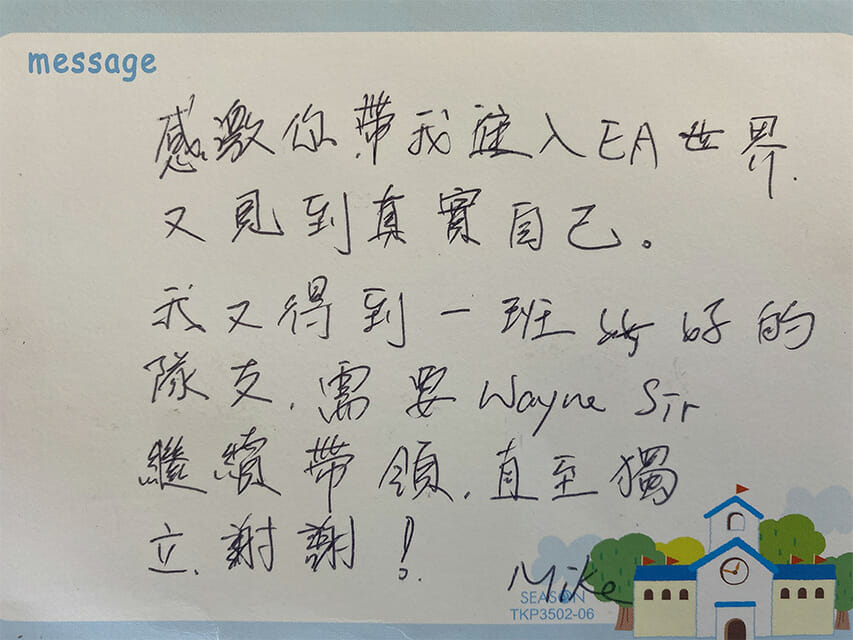 message
感激你帶我進入EA世界.
又見到真實自己。
我又得到一班好好的
隊友.需要Wayne Sir
繼續帶領.直至獨
立.謝謝!
Mike
SEASON
TKP3502-06